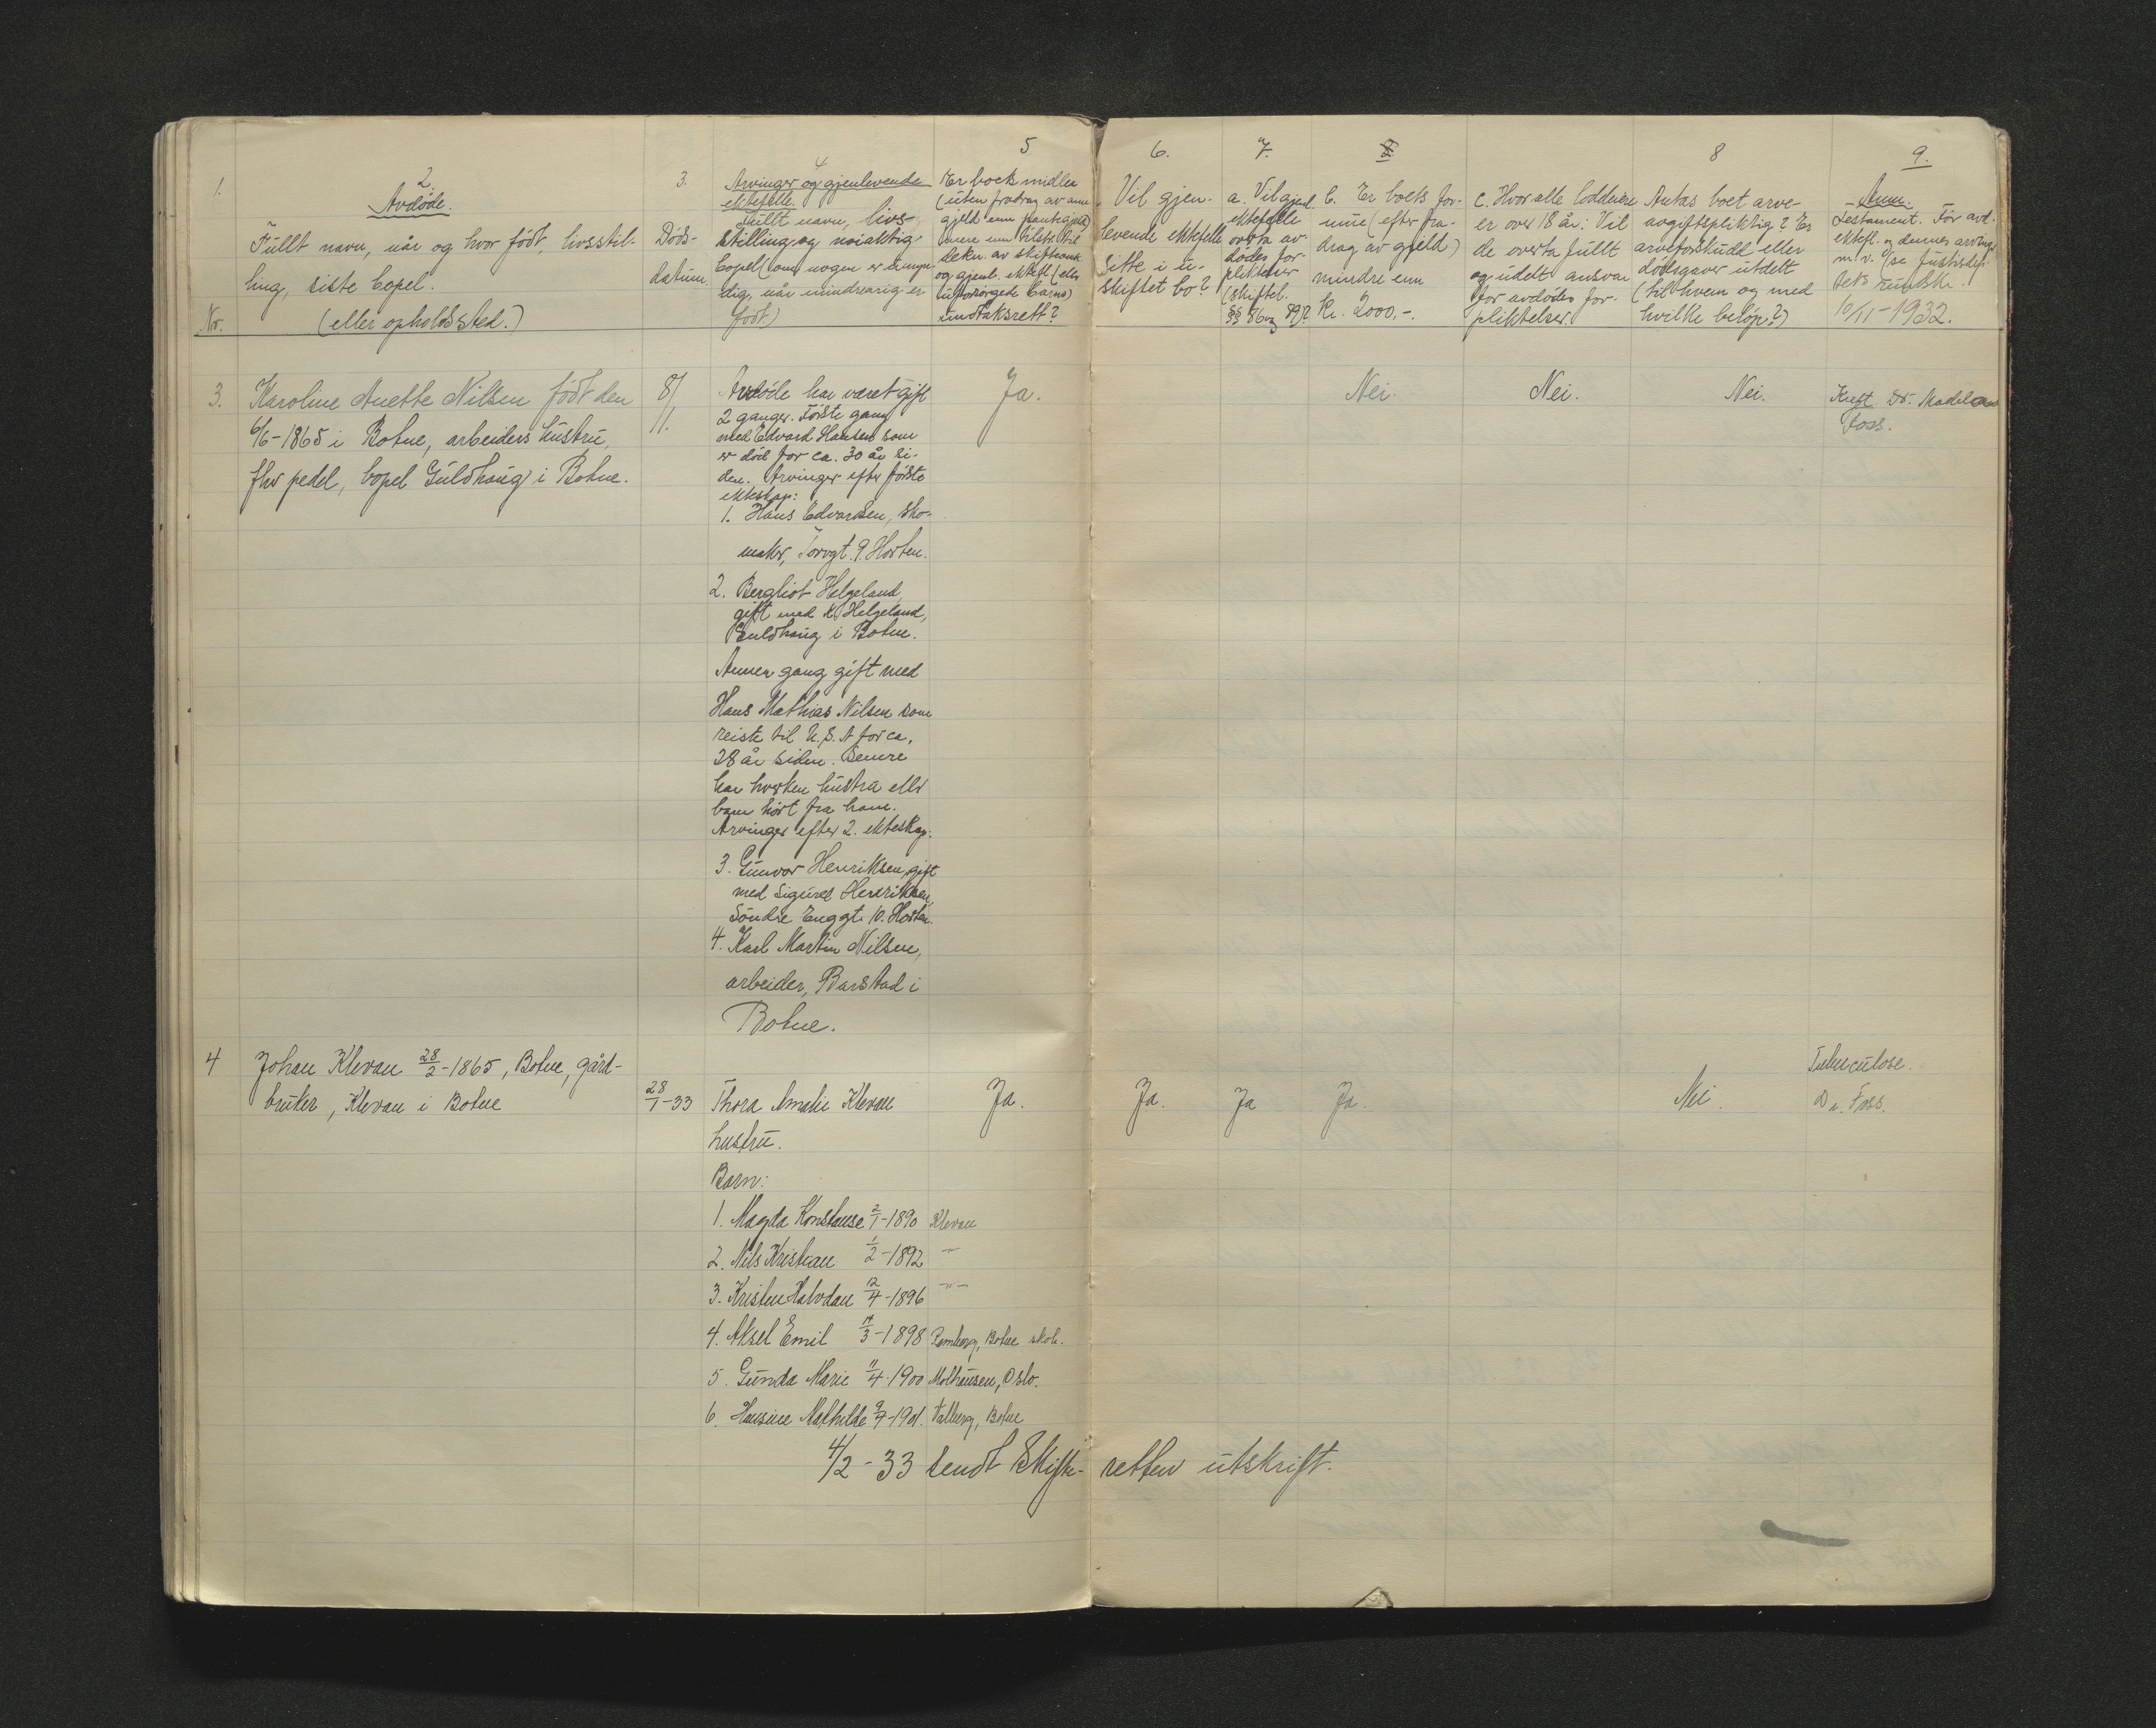 1.
Nr.
2.
Avdöde.
Fullt navn, når og hvor födt, livsstil-
ling, siste bopel.
(eller opholdssted.)
3.
Döds-
datum
4
Arvinger og gjenlevende
ektefelle.
Fullt navn, livs-
stilling og nöiaktig
bopel (om nogen er umyn-
dig, når mindreårig er
födt.)
5
Er boets midler
(uten fradrag av annen
gjeld enn pantegjeld)
og gjenl. ektef. (eller
uforsörgede barns)
undtaksrett?
6.
Vil gjen-
levende ektefelle
sitte i u-
skiftet bo?
7.
a. Vil gjenl.
ektefelle
overta av-
dödes for-
pliktelser
(skiftel.
§§ 86 og 89)?
b. Er boets for-
mue (efter fra-
drag av gjeld)
mindre enn
kr. 2000,-.
c. Hvor alle loddeiere
er over 18 år: Vil
de overta fullt
og udelt ansvar
for avdödes for-
pliktelser.
8
Antas boet arve-
avgiftspliktig? Er
arveforskudd eller
dödsgaver utdelt
(til hvem og med
hvilke belöp?)
9.
Anm.
Testament. For avd.
ektef. og dennes arvinger
m. v. (se Justisdep-
tets rundskr.
10/11-1932.
3. Karoline Anette Nilsen födt den
6/6-1865 i Botne, arbeiders hustru,
fhv pedel, bopel Guldhaug i Botne.
8/
1.
Avdöde har været gift
2 ganger. Förste gang
med Edvard Hansen som
er död for ca. 30 år si-
den. Arvinger efter förste
ekteskap:
1. Hans Edvardsen, sko-
maker, Torvgt. 9 Horten.
2. Bergliot Helgeland,
gift med K. Helgeland,
Guldhaug i Botne.
Annen gang gift med
Hans Mathias Nilsen som
reiste til U.S.A for ca.
28 år siden. Senere
har hverken hustru eller
barn hört fra ham.
Arvinger efter 2. ekteskap:
3. Gunvor Henriksen, gift
med Sigurd Henriksen,
Söndre Enggt. 10. Horten.
4. Karl Martin Nilsen,
arbeider, Barstad i
Botne.
Ja.
Nei.
Nei.
Nei.
Kreft Dr.
Foss.
4 Johan Klevan 28/2-1865, Botne, gård-
bruker, Klevan i Botne
28/1-33
Thora Amalie Klevan
hustru.
Barn:
1. Magda Konstanse 2/1-1890 Klevan
2. Nils Kristian 1/2-1892 -"-
3. Kristen Halvdan 12/4-1896 -"-
4. Aksel Emil 14/3-1898 Ramberg, Botne skole.
5. Gunda Marie 11/4-1900 Molthausen, Oslo.
6. Hansine Mathilde 9/7-1901. Valberg, Botne
Ja.
Ja.
Ja
Ja.
Nei.
Tuberculose.
Dr. Foss.
4/2-33 sendt Skifte- retten utskrift.